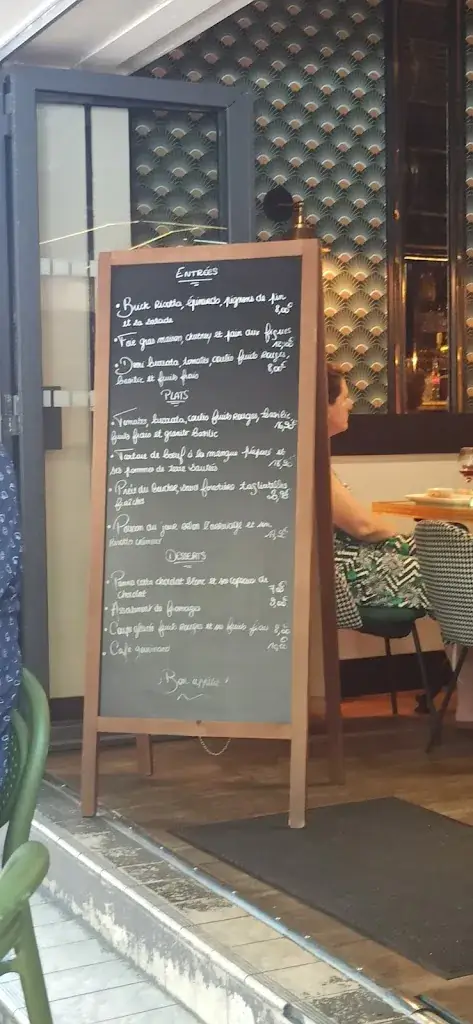 ENTRÉES
• Brick Ricotta, épinards, pignons de pin
et sa salade 8,00€
• Foie gras maison, chutney et pain aux figues
• Demi burrata, tomates, coulis fruits rouges,
basilic et fruits frais 8,00€
PLATS
• Tomates, burrata, coulis fruits rouges, basilic,
fruits frais et basilic 16,90€
• Tartare de bœuf à la mangue et
ses pommes de terre sautées
• du boucher, sauce forestière tagliatelles
fraîches
• Poisson du jour selon l'arrivage et son
Risotto crémeux
DESSERTS
• Panna cotta chocolat blanc et ses copeaux de
chocolat 7,00€
• Assortiment de fromages 9,00€
• Coupe glacée fruits rouges et ses fruits frais 8,00€
• Café gourmand
Bon appétit !